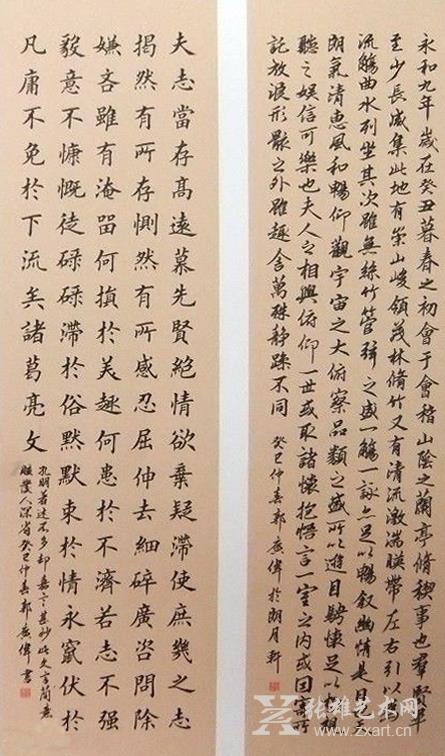 永和九年歲在癸丑暮春之初會于會稽山陰之蘭亭脩稧事也羣賢畢
至少長咸集此地有崇山峻領茂林脩竹又有清流激湍暎帶左右引以爲
流觴曲水列坐其次雖無絲竹管弦之盛一觴一詠亦足以暢叙幽情是日也天
朗氣清惠風和暢仰觀宇宙之大俯察品類之盛所以遊目騁懷足以極視
聽之娛信可樂也夫人之相與俯仰一世或取諸懷抱悟言一室之內或因寄所
託放浪形骸之外雖趣舍萬殊静躁不同 癸巳仲春郭廣偉於朗月軒
夫志當存高遠慕先賢絕情欲棄疑滯使庶幾之志
揭然有所存惻然有所感忍屈伸去細碎廣咨問除
嫌吝雖有淹留何損於美趣何患於不濟若志不强
毅意不慷慨徒碌碌滯於俗默默束於情永竄伏於
凡庸不免於下流矣諸葛亮文
孔明著述不多却嘉言甚妙此文言簡意
賅發人深省癸巳仲春郭廣偉書
张雄艺术网
www.zxart.cn